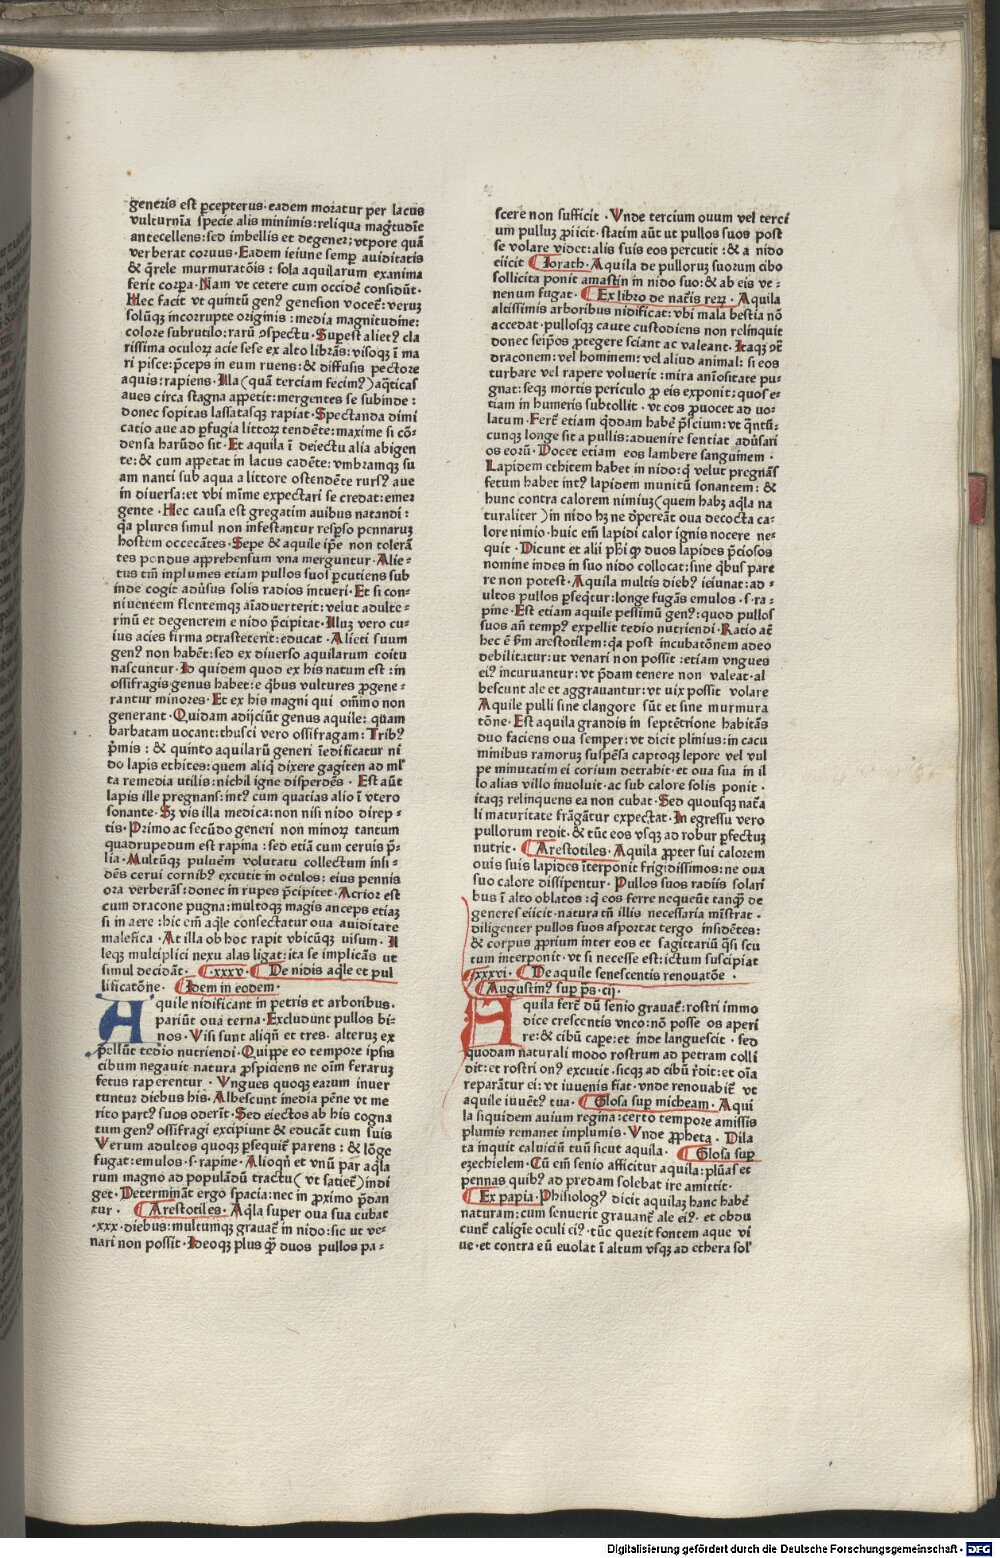 generis est ꝑcepterus·eadem moratur per lacus
vulturnīa specie alis minimis:reliqua mag̃tudīe
antecellens:sed imbellis et degener;vtpore quā
verberat coruus·Eadem ieiune semꝑ auiditatis
& q̃rele murmuratōis: sola aquilarum exanima
ferit corꝑa·Nam vt cetere cum occidē considūt·
Hec facit vt quintū genꝰ genesion vocet̃:veruꝫ
solūqꝫ incorrupte originis:media magnitudine:
colore subrutilo:rarū ꝯspectu·Suꝑest alietꝰ cla
rissima oculoꝝ acie sese ex alto librās:visoqꝫ ī ma
ri pisce:p̄ceps in eum ruens:& diffusis pectore
aquis:rapiens·Illa(quā terciam fecimꝰ)aq̄ticas
aues circa stagna aꝑpetit:mergentes se subinde:
donec sopitas lassatasqꝫ rapiat·Spectanda dimi
catio aue ad ꝑfugia littoꝝ tendēte:maxime si cō-
densa harūdo sit·Et aquila ī deiectu alia abigen
te:& cum aꝑpetat in lacus cadēte:vmbramqꝫ su
am nanti sub aqua a littore ostendēte rursꝰ aue
in diuersa:et vbi mīme expectari se credat:emer
gente·Hec causa est gregatim auibus natandi:
q̄a plures simul non infestantur resꝑso pennaruꝫ
hostem occecātes·Sepe & aquile ip̄e non tolerā
tes pondus apprehensum vna merguntur·Alie-
tus tm̄ inplumes etiam pullos suos ꝑcutiens sub
inde cogit adūsus solis radios intueri·Et si con-
niuentem flentemqꝫ aīaduerterit:velut adulte-
rinū et degenerem e nido p̄cipitat·Illuꝫ vero cu-
ius acies firma ꝯtrasteterit:educat·Alieti suum
genꝰ non habēt:sed ex diuerso aquilarum coitu
nascuntur·Id quidem quod ex his natum est:in
ossifragis genus habet:e q̄bus vultures ꝓgene-
rantur minores·Et ex his magni qui om̄īno non
generant·Quidam adijciūt genus aquile:quam
barbatam uocant:thusci vero ossifragam:Tribꝰ
p̄mis:& quinto aquilarū generi īedificatur ni
do lapis ethites:quem aliq̄ dixere gagiten ad ml̄
ta remedia utilis:nichil igne disperdēs·Est aūt
lapis ille pregnans:intꝰ cum quatias alio ī vtero
sonante·Sꝫ vis illa medica:non nisi nido direp-
tis·Primo ac secūdo generi non minoꝝ tantum
quadrupedum est rapina:sed etiā cum ceruis p̄-
lia·Multūqꝫ puluēm volutatu collectum insi-
dēs cerui cornibꝰ excutit in oculos:eius pennis
ora verberās:donec in rupes p̄cipitet·Acrior est
cum dracone pugna:multoqꝫ magis anceps etiaꝫ
si in aere:hic em̄ aq̄le consectatur oua auiditate
malefica·At illa ob hoc rapit vbicūqꝫ uisum·Il
leqꝫ multiplici nexu alas ligat:ita se implicās ut
simul decidāt· ¶·xxxv·¶De nidis aq̄le et pul
lificatōne·¶Idem in eodem·
Aquile nidificant in petris et arboribus.
pariūt oua terna·Excludunt pullos bi-
nos·Visi sunt aliqn̄ et tres.alteruꝫ ex
pellūt tedio nutriendi·Quippe eo tempore ipsis
cibum negauit natura ꝓspiciens ne oīm feraruꝫ
fetus raperentur·Vngues quoqꝫ earum inuer
tuntur diebus his·Albescunt īnedia pēne vt me
rito partꝰ suos oderīt·Sed eiectos ab his cogna
tum genꝰ ossifragi excipiunt & educāt cum suis
Verum adultos quoqꝫ ꝑsequit̃ parens:& lōge
fugat:emulos·s·rapine·Alioqn̄ et vnū par aq̄la
rum magno ad populādū tractu(vt satiet̃)indi
get·Determināt ergo spacia:nec in ꝓximo p̄dan
tur·¶Arestotiles·Aq̄la super oua sua cubat
·xxx·diebus:multumqꝫ grauat̃ in nido:sic ut ve-
nari non possit·Ideoqꝫ plus qꝫ̄ duos pullos pa-
scere non sufficit·Vnde tercium ouum vel terci
um pulluꝫ ꝓijcit·statim aūt ut pullos suos post
se volare videt:alis suis eos percutit:& a nido
eiicit ¶Iorath·Aquila de pulloruꝫ suorum cibo
sollicita ponit amastin in nido suo:& ab eis ve-
nenum fugat·¶Ex libro de nat̄is reꝝ·Aquila
altissimis arboribus nidificat:vbi mala bestia nō
accedat·pullosqꝫ caute custodiens non relinquit
donec seip̄os ꝓtegere sciant ac valeant·Itaqꝫ ꝯt̃
draconem:vel hominem:vel aliud animal:si eos
turbare vel rapere voluerit:mira anīositate pu-
gnat:seqꝫ mortis periculo ꝓ eis exponit:quos e-
tiam in humeris subtollit·vt eos ꝓuocet ad uo-
latum·Fert̃ etiam q̄ddam habē p̄scium:vt q̄ntū-
cunqꝫ longe sit a pullis:aduenire sentiat adūsari
os eorū·Docet etiam eos lambere sanguinem·
Lapidem ethitem habet in nido:q̄ velut pregnās
fetum habet intꝰ lapidem munitū sonantem:&
hunc contra calorem nimiuꝫ(quem habꝫ aq̄la na
turaliter)in nido hꝫ ne ꝺpereāt oua decocta ca-
lore nimio·huic em̄ lapidi calor ignis nocere ne-
quit·Dicunt et alii ph̄i qꝙ duos lapides p̄ciosos
nomine indes in suo nido collocat:sine q̄bus pare
re non potest·Aquila multis diebꝰ ieiunat:ad-
ultos pullos ꝑseq̄tur:longe fugās emulos·s·ra-
pine·Est etiam aquile pessimū genꝰ:quod pullos
suos añ tempꝰ expellit tedio nutriendi·Ratio at̃
hec ē ẜm arestotilem:q̄a post incubatōnem adeo
debilitatur:ut venari non possit:etiam vngues
eiꝰ incuruantur:vt p̄dam tenere non valeat·al
bescunt ale et aggrauantur:vt uix possit volare
Aquile pulli sine clangore sūt et sine murmura
tōne·Est aquila grandis in septētrione habitās
duo faciens oua semper:vt dicit plinius:in cacu
minibus ramoruꝫ suspēsa captoqꝫ lepore vel vul
pe minutatim ei corium detrahit·et oua sua in il
lo alias villo inuoluit·ac sub calore solis ponit·
itaqꝫ relinquens ea non cubat·Sed quousqꝫ nat̄a
li maturitate frāgātur expectat·In egressu vero
pullorum redit·& tūc eos vsqꝫ ad robur ꝑfectuꝫ
nutrit·¶Arestotiles·Aquila ꝓpter sui calorem
ouis suis lapides īterponit frigidissimos:ne oua
suo calore dissipentur·Pullos suos radiis solari
bus ī alto oblatos:q̄ eos ferre nequeūt tanqꝫ̄ de
generes eiicit·natura tn̄ illis necessaria mīstrat·
diligenter pullos suos asportat tergo insidētes:
& corpus ꝓprium inter eos et sagittariū q̄si scu
tum interponit·vt si necesse est:ictum suscipiat
¶xxxvi·¶De aquile senescentis renouatōe·
¶Augustinꝰ suꝑ p̄s·cij·
Aquila fert̃ dū senio grauat̃:rostri immo
dice crescentis vnco:nō posse os aperi
re:& cibū cape:et inde languescit·sed
quodam naturali modo rostrum ad petram colli
dit:et rostri onꝰ excutit·sicqꝫ ad cibū r̄dit:et oīa
reparātur ei:vt iuuenis fiat·vnde renouabit̃ vt
aquile iuuētꝰ tua·¶Glosa suꝑ micheam·Aqui
la siquidem auium regina:certo tempore amissis
plumis remanet implumis·Vnde ꝓpheta·Dila
ta inquit caluiciū tuū sicut aquila·¶Glosa suꝑ
ezechielem·Cū em̄ senio afficitur aquila:plūas et
pennas quibꝰ ad predam solebat ire amittit·
¶Ex papia·Phisiologꝰ dicit aquilaꝫ hanc habē
naturam:cum senuerit grauant̃ ale eiꝰ·et obdu
cunt̃ caligīe oculi eiꝰ·tūc querit fontem aque vi
ue·et contra eū euolat ī altum vsqꝫ ad ethera sol̓
Digitalisierung gefördert durch die Deutsche Forschungsgemeinschaft · DFG